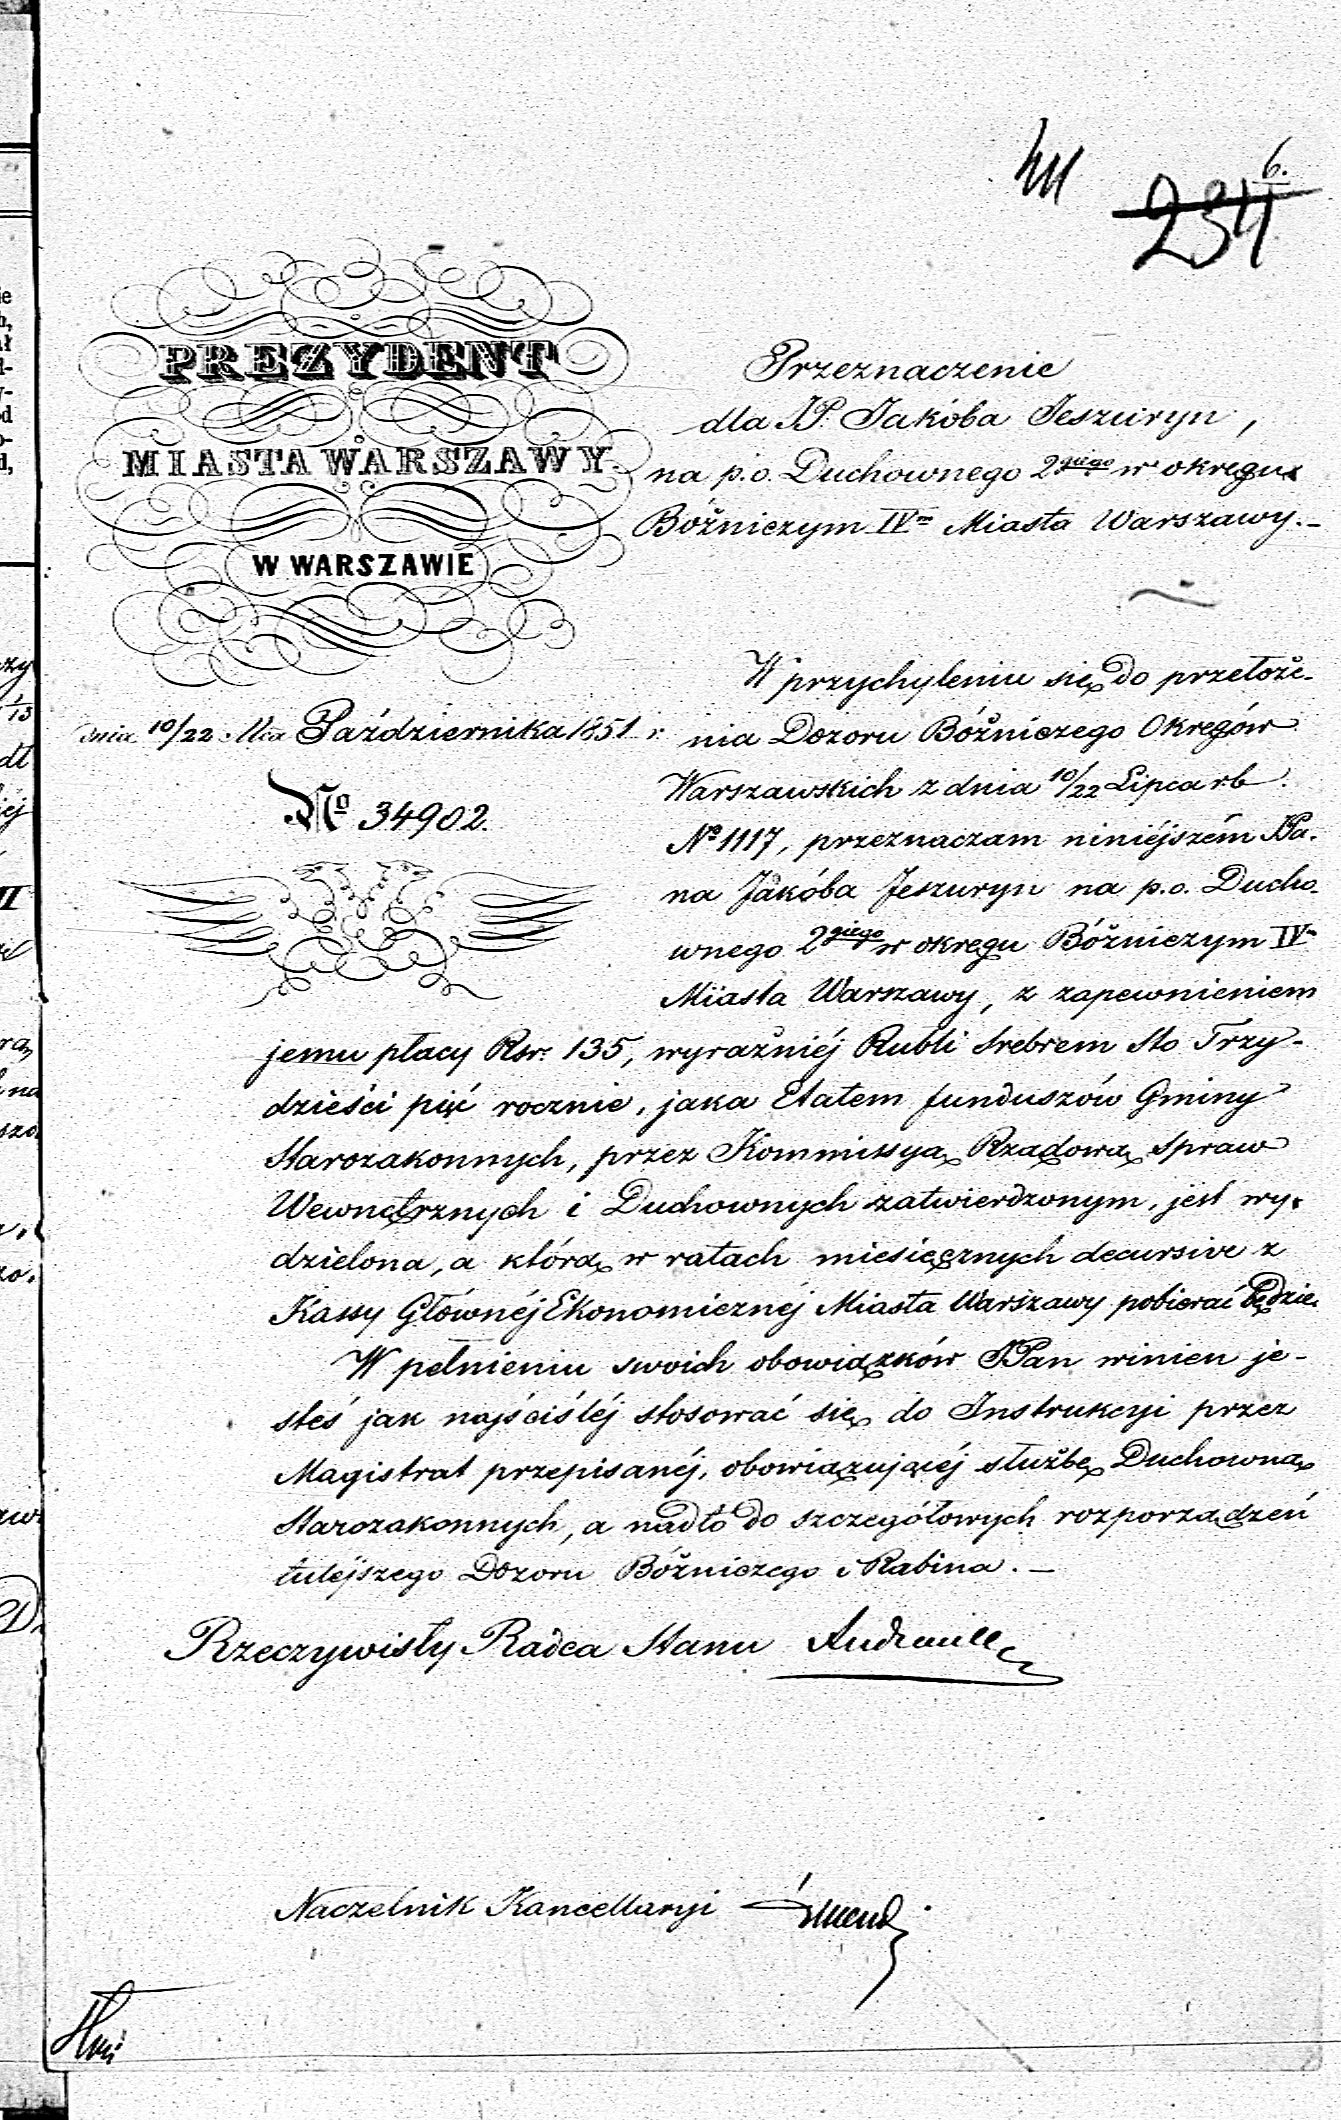 6.
234
PREZYDENT
MIASTA WARSZAWY
W WARSZAWIE
dnia 10/22 Mca Października 1851 r.
No 34902.
Przeznaczenie
dla JP. Jakóba Jeszuryn,
na p.o. Duchownego 2giego w okręgu
Bóźniczym IVm Miasta Warszawy.–
W przychyleniu się do przełoże-
nia Dozoru Bóźniczego Okręgów
Warszawskich z dnia 10/22 Lipca rb.
No 1117, przeznaczam niniéjszém JPa-
na Jakóba Jeszuryn na p.o. Ducho-
wnego 2giego w okręgu Bóźniczym IVm
Miasta Warszawy, z zapewnieniem
jemu płacy Rsr. 135, wyraźniéj Rubli srebrem sto Trzy-
dzieści pięć rocznie, jaka Etatem funduszów Gminy
Starozakonnych, przez Kommissyą Rządową Spraw
Wewnętrznych i Duchownych zatwierdzonym, jest wy-
dzielona, a którą w ratach miesięcznych decursive z
Kassy Głównéj Ekonomicznéj Miasta Warszawy pobierać będzie.
W pełnieniu swoich obowiązków JPan winien je-
steś jak najściśléj stosować się do Instrukcyi przez
Magistrat przepisanéj, obowiązującéj służbę Duchowną
Starozakonnych, a nadto do szczegółowych rozporządzeń
tutéjszego Dozoru Bóźniczego i Rabina.–
Rzeczywisty Radca Stanu
Naczelnik Kancellaryi